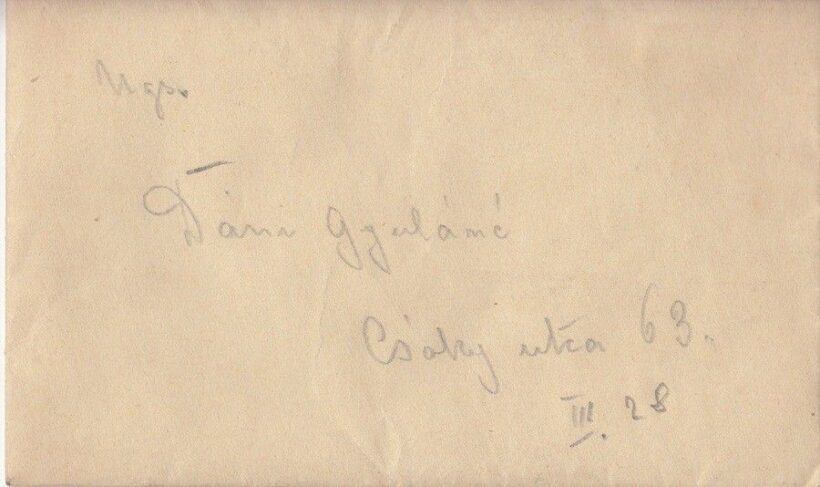 Ngs.
Dáni Gyuláné
Csáky utca 63.
III. 28